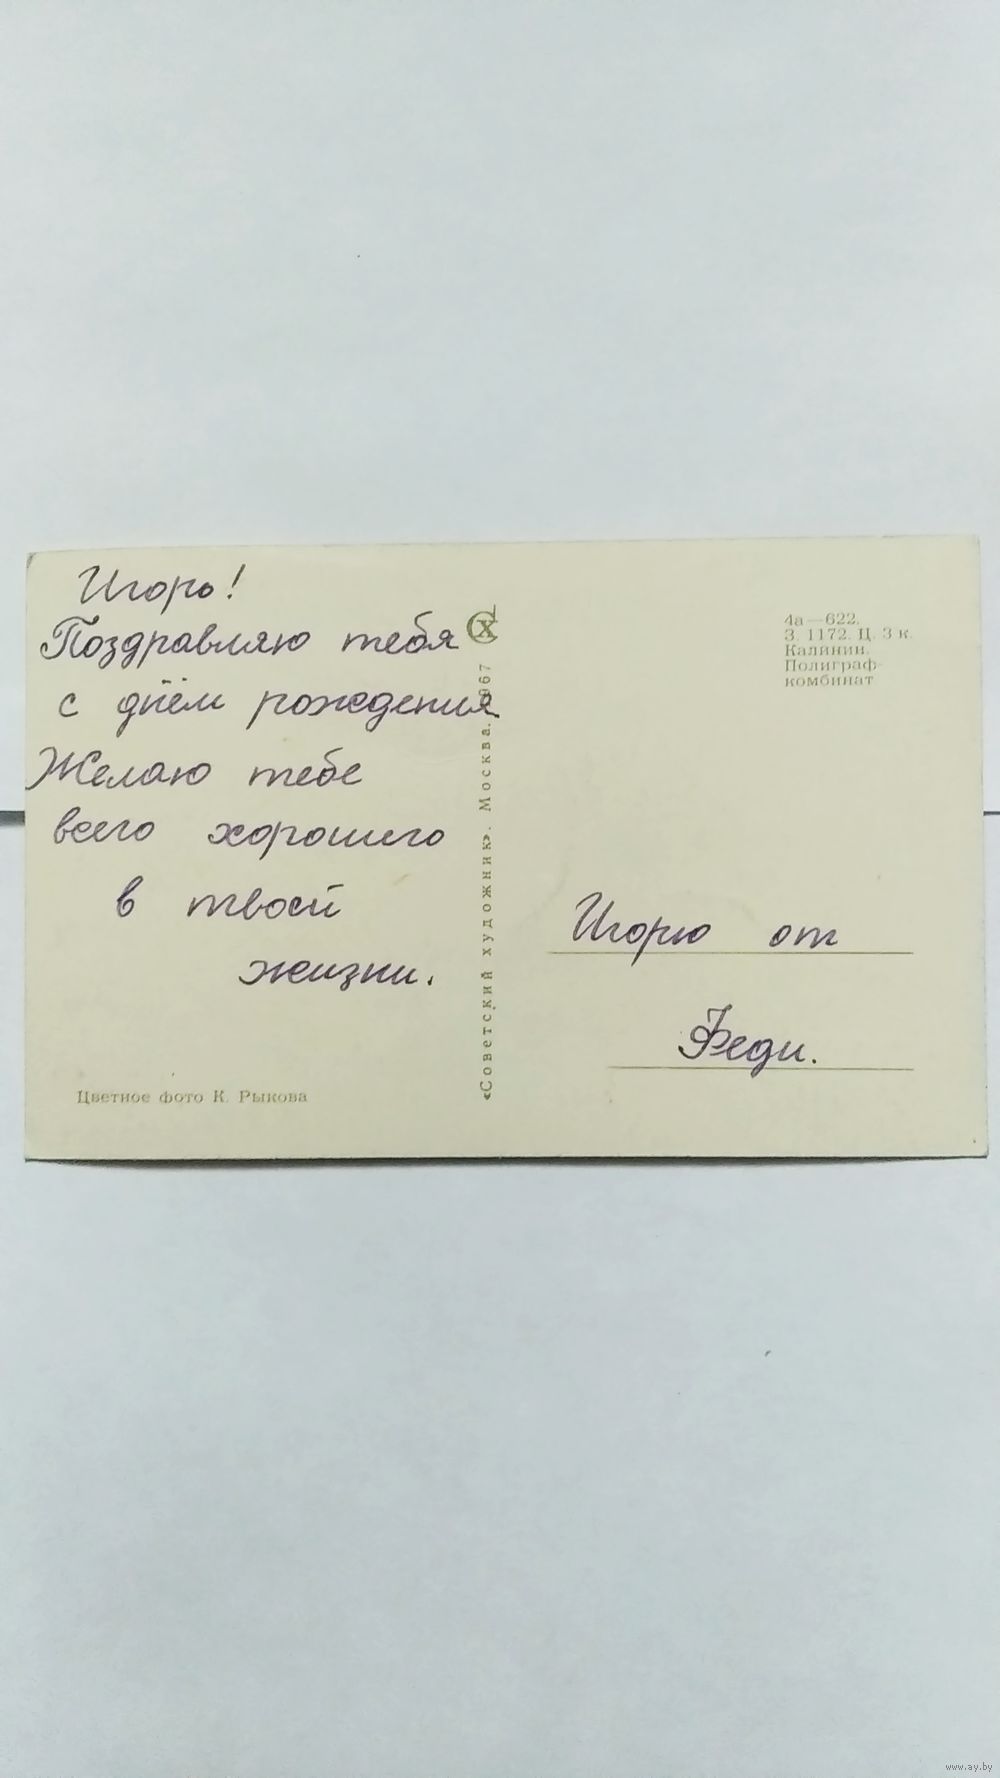 Игорь!
Поздравляю тебя
с днём рождения
Желаю тебе
всего хорошего
в твоей
жизни.
Цветное фото К. Рыкова
«Советский художник». Москва. 1967
СХ
4а—622.
З. 1172. Ц. 3 к.
Калинин.
Полиграф-
комбинат
Игорю от
Феди.
www.ay.by